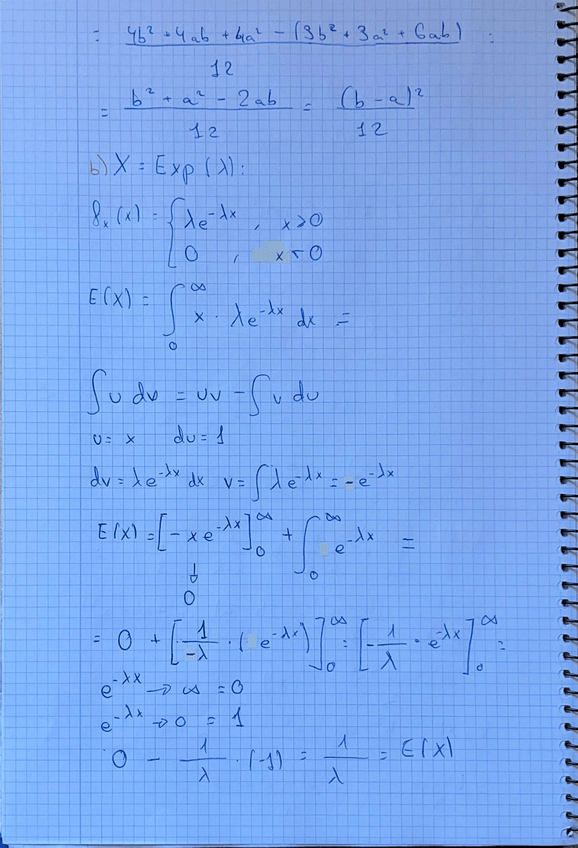 = (4b² + 4ab + 4a² - (3b² + 3a² + 6ab)) / 12 =
= (b² + a² - 2ab) / 12 = (b - a)² / 12
b) X = Exp(λ):
fₓ(x) = { λe^-λx , x>0
0 , x<0
E(X) = ∫₀^∞ x · λe^-λx dx =
∫u dv = uv - ∫v du
u = x du = 1
dv = λe^-λx dx v = ∫λe^-λx = -e^-λx
E(X) = [-xe^-λx]₀^∞ + ∫₀^∞ e^-λx =
↓
0
= 0 + [1/-λ · (e^-λx)]₀^∞ = [-1/λ · e^-λx]₀^∞ =
e^-λx → ∞ = 0
e^-λx → 0 = 1
0 - 1/λ · (-1) = 1/λ = E(X)